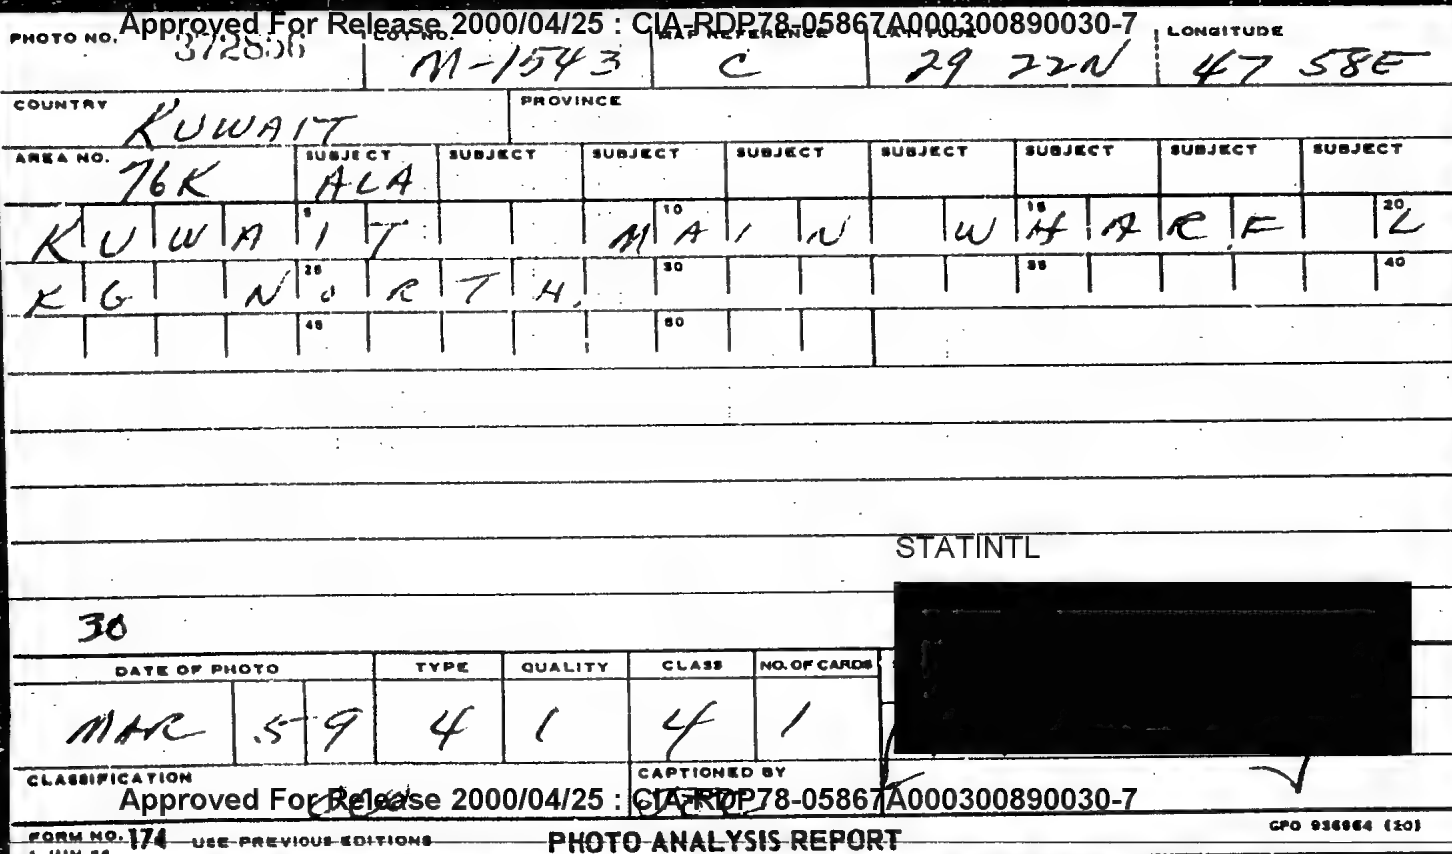 Approved For Release 2000/04/25 : CIA-RDP78-05867A000300890030-7
PHOTO NO. LOT NO. MAP REFERENCE LATITUDE LONGITUDE
372856 M-1543 C 29 22N 47 58E
COUNTRY PROVINCE
KUWAIT
AREA NO. SUBJECT SUBJECT SUBJECT SUBJECT SUBJECT SUBJECT SUBJECT SUBJECT
76K ALA
5 10 15 20
KUWAIT MAIN WHARF L
25 30 35 40
KG NORTH.
45 50
STATINTL
30
DATE OF PHOTO TYPE QUALITY CLASS NO. OF CARDS
MAR 59 4 1 4 1
CLASSIFICATION CAPTIONED BY
Approved For Release 2000/04/25 : CIA-RDP78-05867A000300890030-7
FORM NO. 174 USE PREVIOUS EDITIONS PHOTO ANALYSIS REPORT GPO 936964 (20)